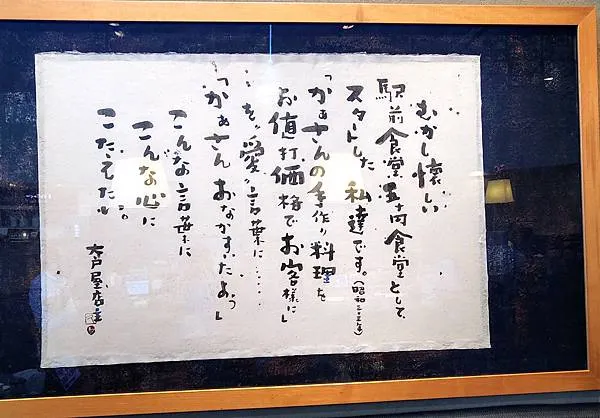 むかし懐しい
駅前食堂五十円食堂として、
スタートした私達です。(昭和三十三年)
「かぁさんの手作り料理を
お値打価格でお客様に」
を、愛言葉に……
「かぁさんおなかすいたよぅ」
こんな言葉に
こんな心に
こたえたい。
大戸屋店主